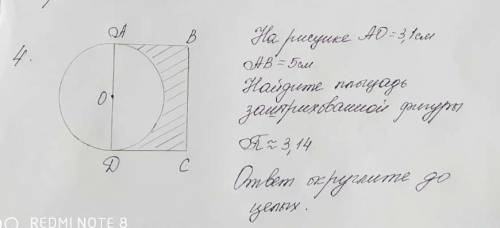 4.
A
B
O
D
C
На рисунке AD = 3,1 см
AB = 5 см
Найдите площадь
заштрихованной фигуры
π ≈ 3,14
Ответ округлите до
целых.
REDMI NOTE 8